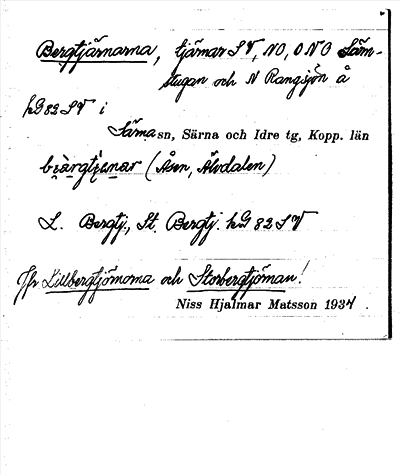 Bergtjärnarna, tjärnar SV, NO, ONO Säm-
stugan och N Rangsjön å
kG82SV i
Särna sn, Särna och Idre tg, Kopp. län
(Åsen, Älvdalen)
L. Bergtj., St. Bergtj. kG82SV
Jfr Lillbergtjärnarna och Storbergtjärnan!
Niss Hjalmar Matsson 1937.